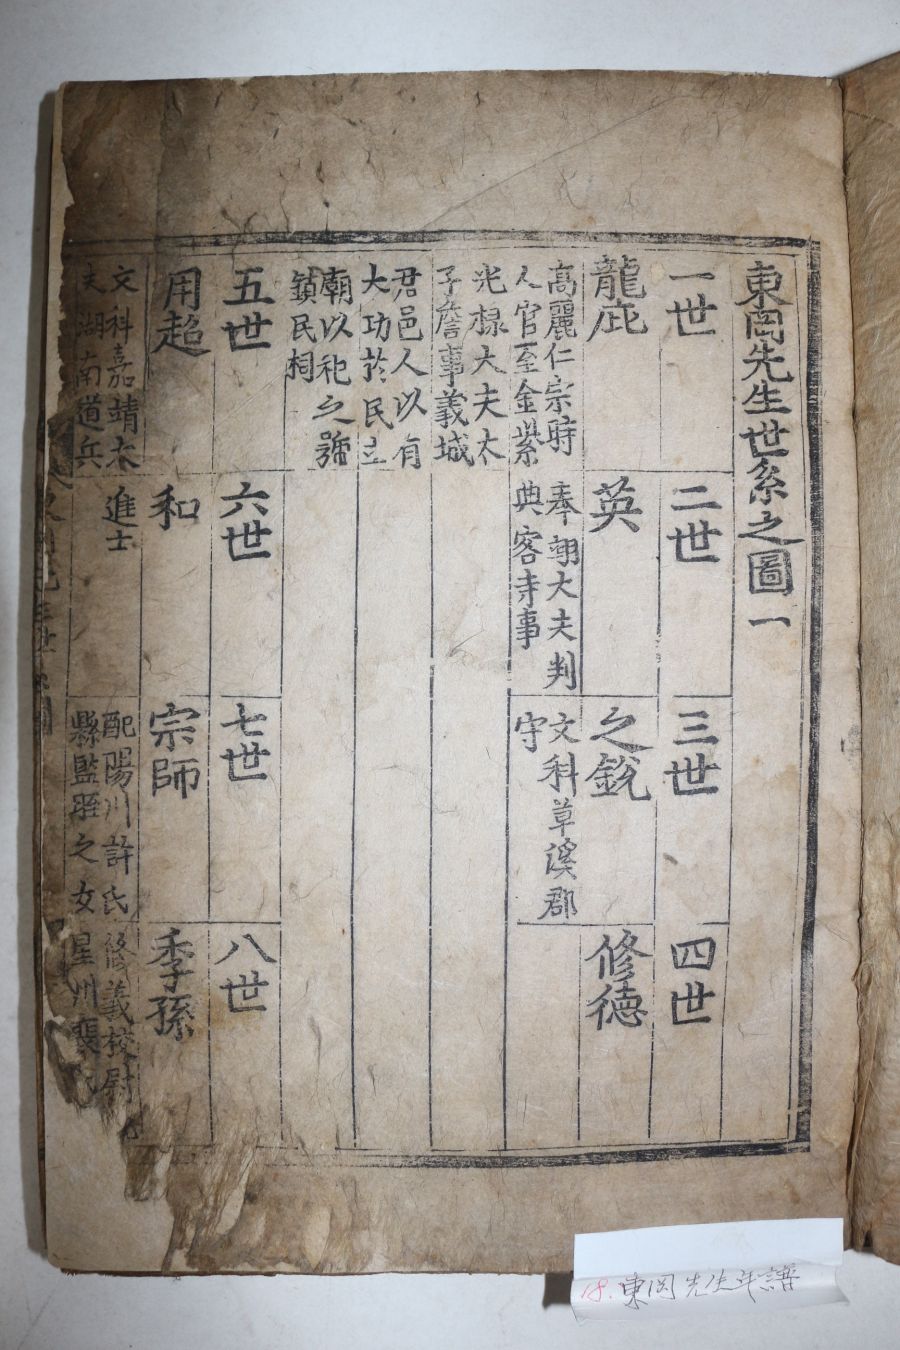 東岡先生世系之圖一
一世
二世
三世
四世
龍庇
英
之銳
修德
高麗仁宗時
人官至金紫
光祿大夫太
子詹事義城
君邑人以有
大功於民立
廟以祀之號
鎮民祠
奉朝大夫判
典客寺事
文科草溪郡
守
五世
六世
七世
八世
用超
和
宗師
季孫
文科嘉靖大
夫湖南道兵
進士
配陽川許氏
縣監 之女
修義校尉配
星州裵氏
18. 東岡先生年譜